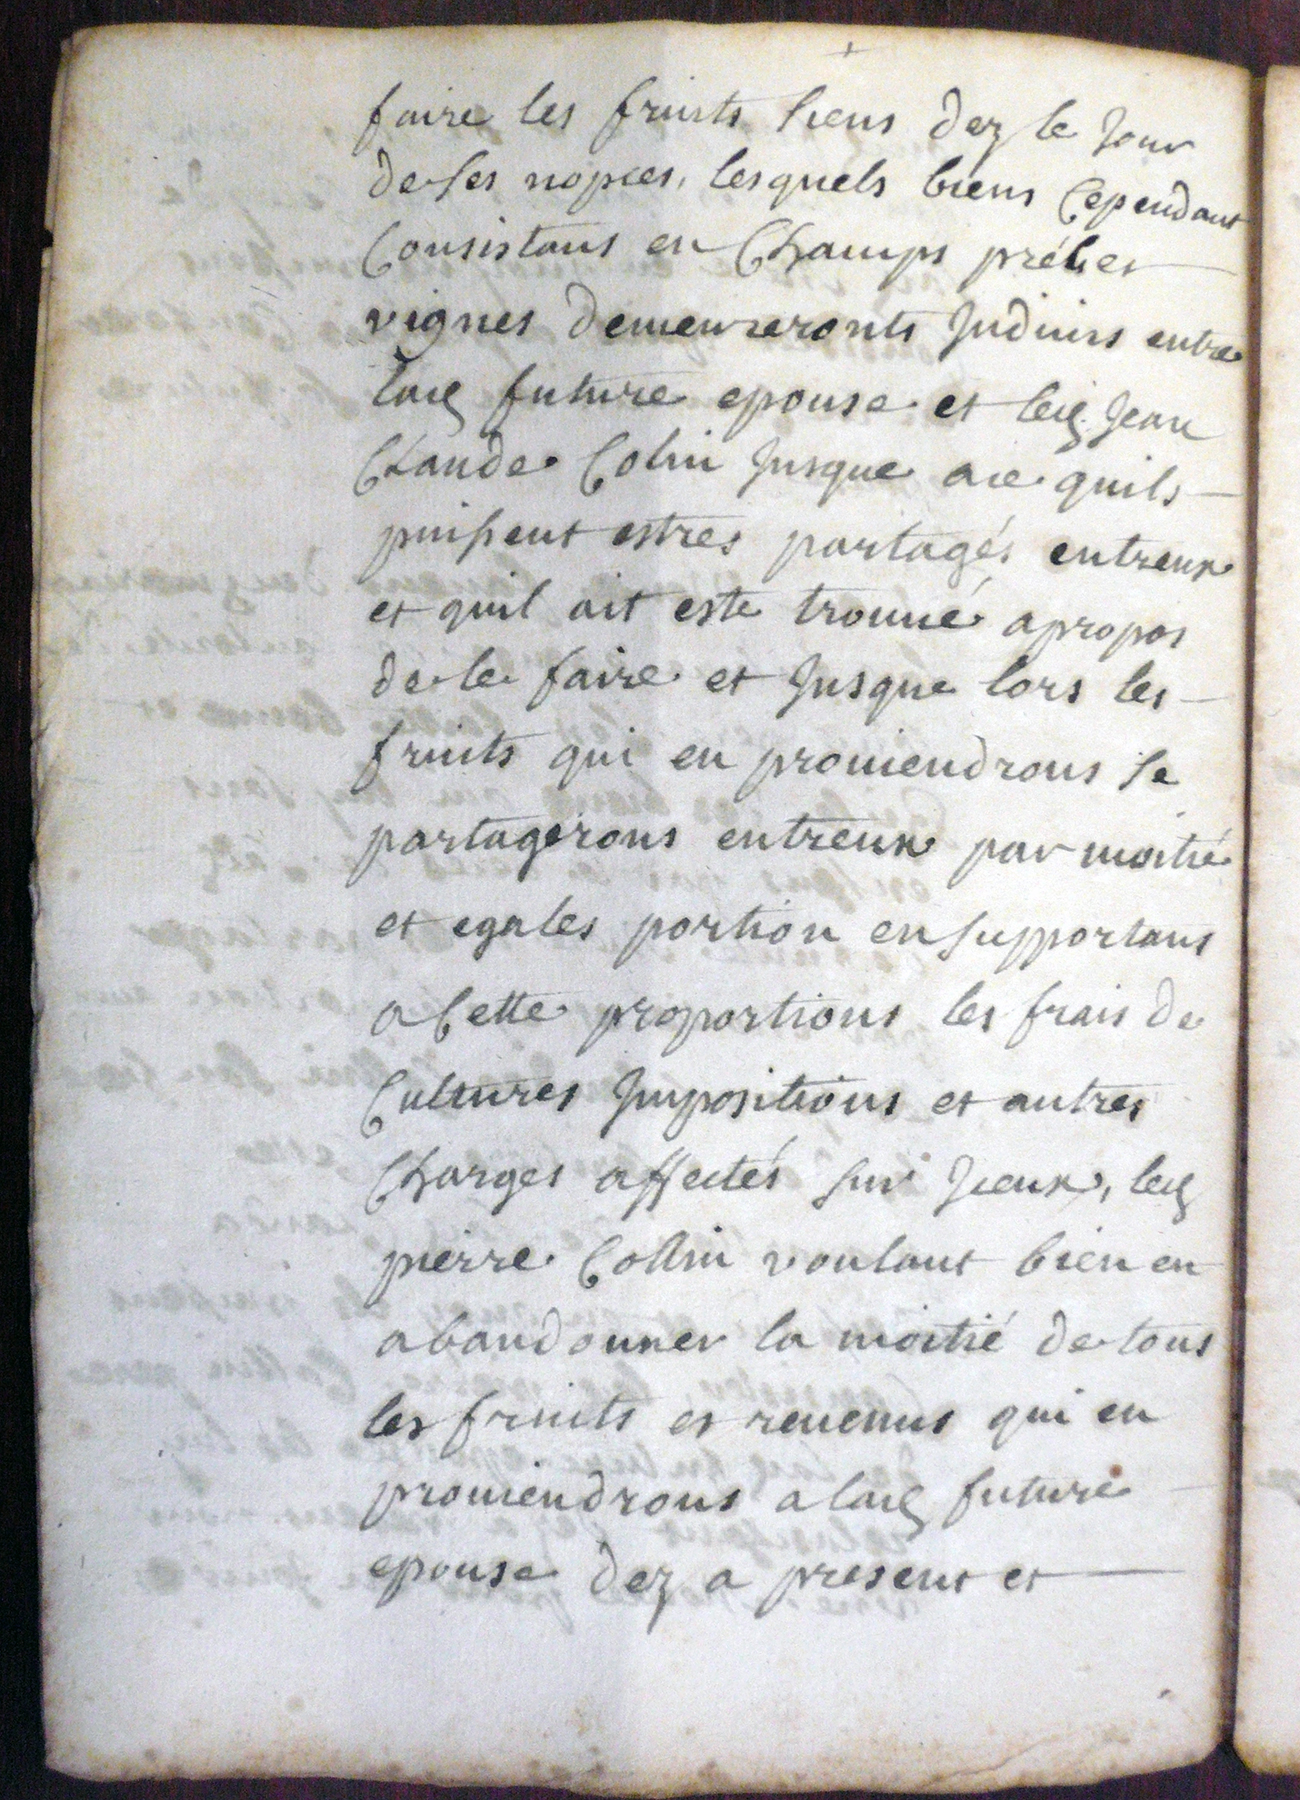 faire les fruits siens dez le Jour
de ses nopces, lesquels biens Cependant
Consistans en Champs prélies
vignes demeureronts Indivis entre
lad future epouse et led. Jean
Claude Colin Jusque ace quils
puissent estres partagés entreux
et quil ait este trouué apropos
de le faire et Jusque lors les
fruits qui en prouiendrons se
partagerons entreux par moitié
et egales portion en supportans
a Cette proportions les frais de
Cultures Impositions et autres
Charges affectés sur Iceux, led
pierre Collin voulant bien en
abandonner la moitié de tous
les fruits et reuenus qui en
prouiendrons a lad future
epouse dez a present et